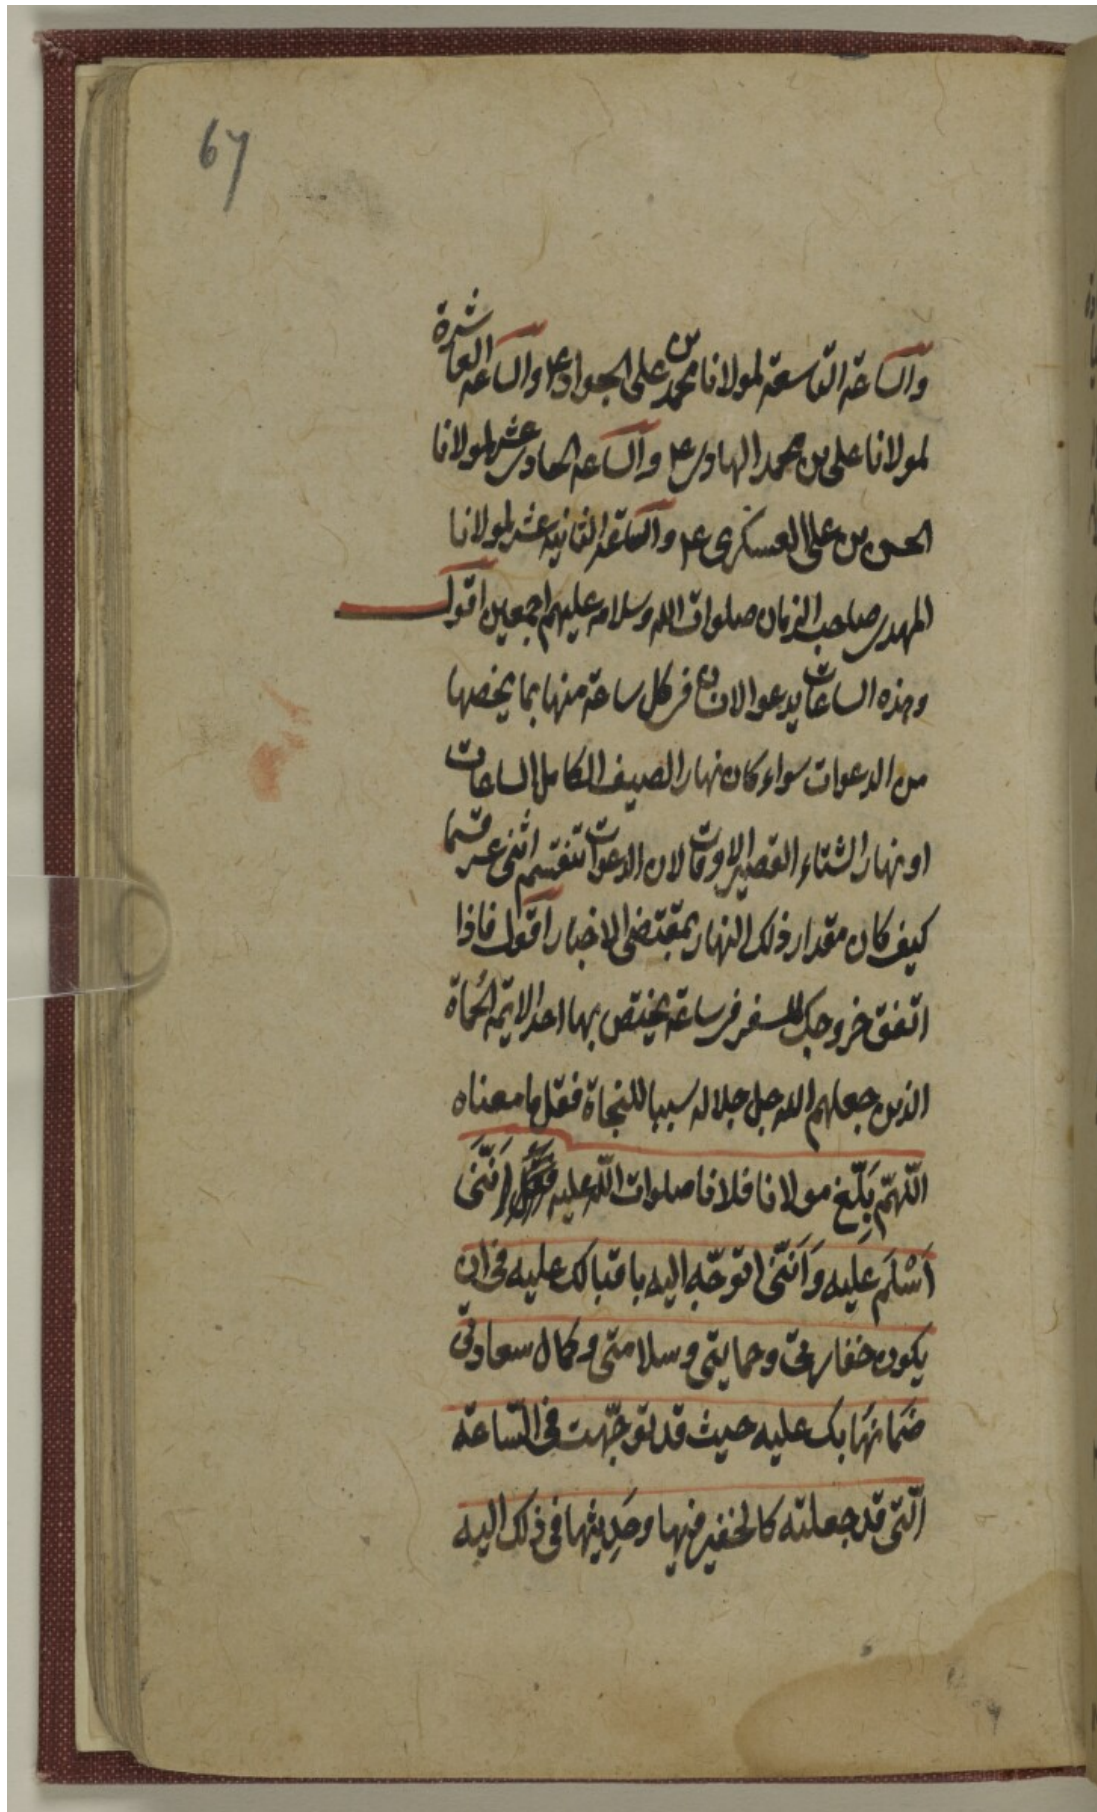 67
والساعة التاسعة لمولانا محمد بن على الجواد ع والساعة العاشرة
لمولانا على بن محمد الهادى ع والساعة الحادى عشر لمولانا
الحسن بن على العسكرى ع والساعة الثانية عشر لمولانا
المهدى صاحب الزمان صلوات الله وسلامه عليهم اجمعين اقول
وهذه الساعات يدعو الانسان فى كل ساعة منها بما يخصها
من الدعوات سواء كان نهار الصيف الكامل الساعات
او نهار الشتاء القصير الاوقات لان الدعوات تنقسم اثنى عشر قسما
كيف كان مقدار ذلك النهار بمقتضى الاخبار اقول فاذا
اتفق خروجك للسفر فى ساعة يختص بها احد الائمة الحماة
الذين جعلهم الله جل جلاله سببا للنجاة فقل ما معناه
اللّهمّ بَلِّغ مولانا فلانا صلوات اللّه عليه اَنّنى
اُسَلِّم عَليه وَاَنَّنى اتوجّه اليه باقبالك عليه فى ان
يكون خفارتى وحمايتى وسلامتى وكمال سعادتى
ضمانها بك عليه حيث قد توجّهت فى السّاعة
الّتى قد جعلته كالخفير فيها وحديثها فى ذلك اليه